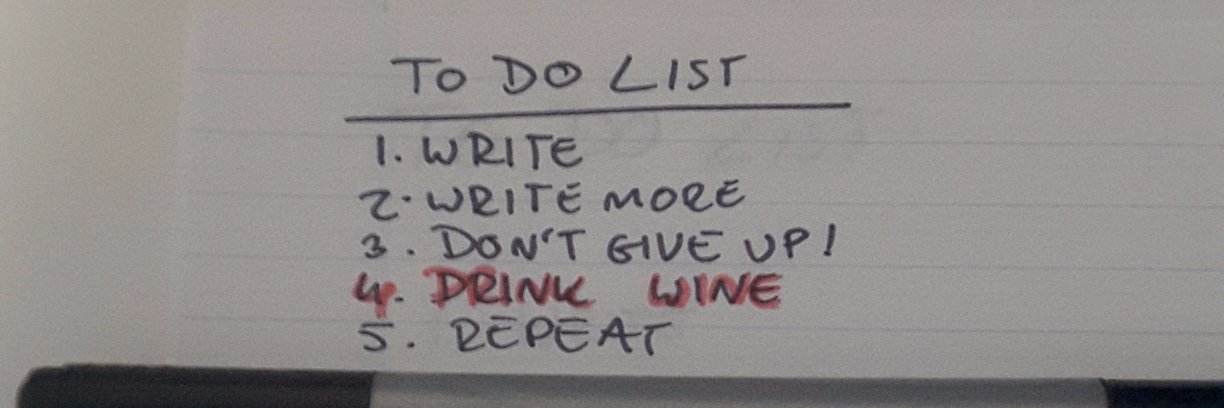 TO DO LIST
1. WRITE
2. WRITE MORE
3. DON'T GIVE UP!
4. DRINK WINE
5. REPEAT